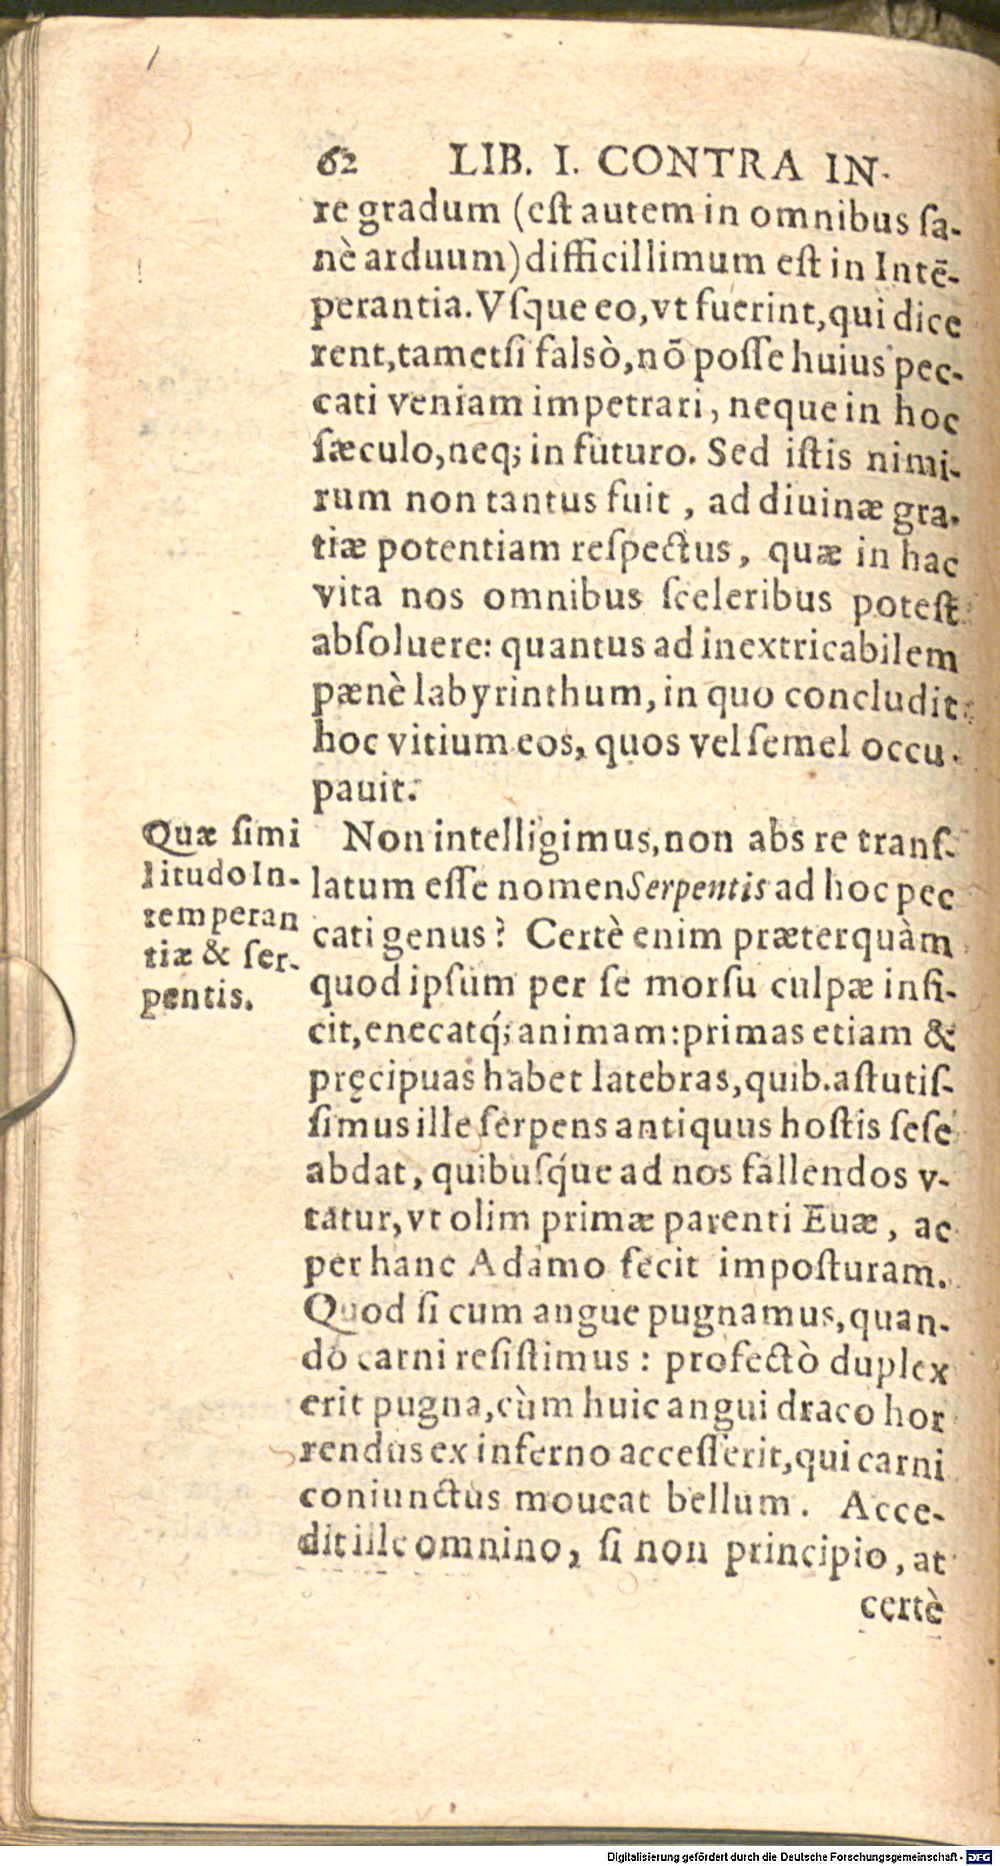 62 LIB. I. CONTRA IN-
re gradum (eſt autem in omnibus ſa-
nè arduum) difficillimum eſt in Intē-
perantia. Vſque eo, vt fuerint, qui dice
rent, tametſi falsò, nō poſſe huius pec-
cati veniam impetrari, neque in hoc
ſæculo, neq; in futuro. Sed iſtis nimi-
rum non tantus fuit, ad diuinæ gra-
tiæ potentiam reſpectus, quæ in hac
vita nos omnibus ſceleribus poteſt
abſoluere: quantus ad inextricabilem
pænè labyrinthum, in quo concludit
hoc vitium eos, quos vel ſemel occu-
pauit.
Quæ ſimi
litudo In-
temperan
tiæ & ſer-
pentis.
Non intelligimus, non abs re tranſ-
latum eſſe nomen Serpentis ad hoc pec
cati genus? Certè enim præterquàm
quod ipſum per ſe morſu culpæ infi-
cit, enecatq́; animam: primas etiam &
pręcipuas habet latebras, quib. aſtutiſ-
ſimus ille ſerpens antiquus hoſtis ſeſe
abdat, quibuſq́ue ad nos fallendos v-
tatur, vt olim primæ parenti Euæ, ac
per hanc Adamo fecit impoſturam.
Quod ſi cum angue pugnamus, quan-
do carni reſiſtimus: profectò duplex
erit pugna, cùm huic angui draco hor
rendus ex inferno acceſſerit, qui carni
coniunctus moueat bellum. Acce-
dit ille omnino, ſi non principio, at
certè
Digitalisierung gefördert durch die Deutsche Forschungsgemeinschaft - DFG